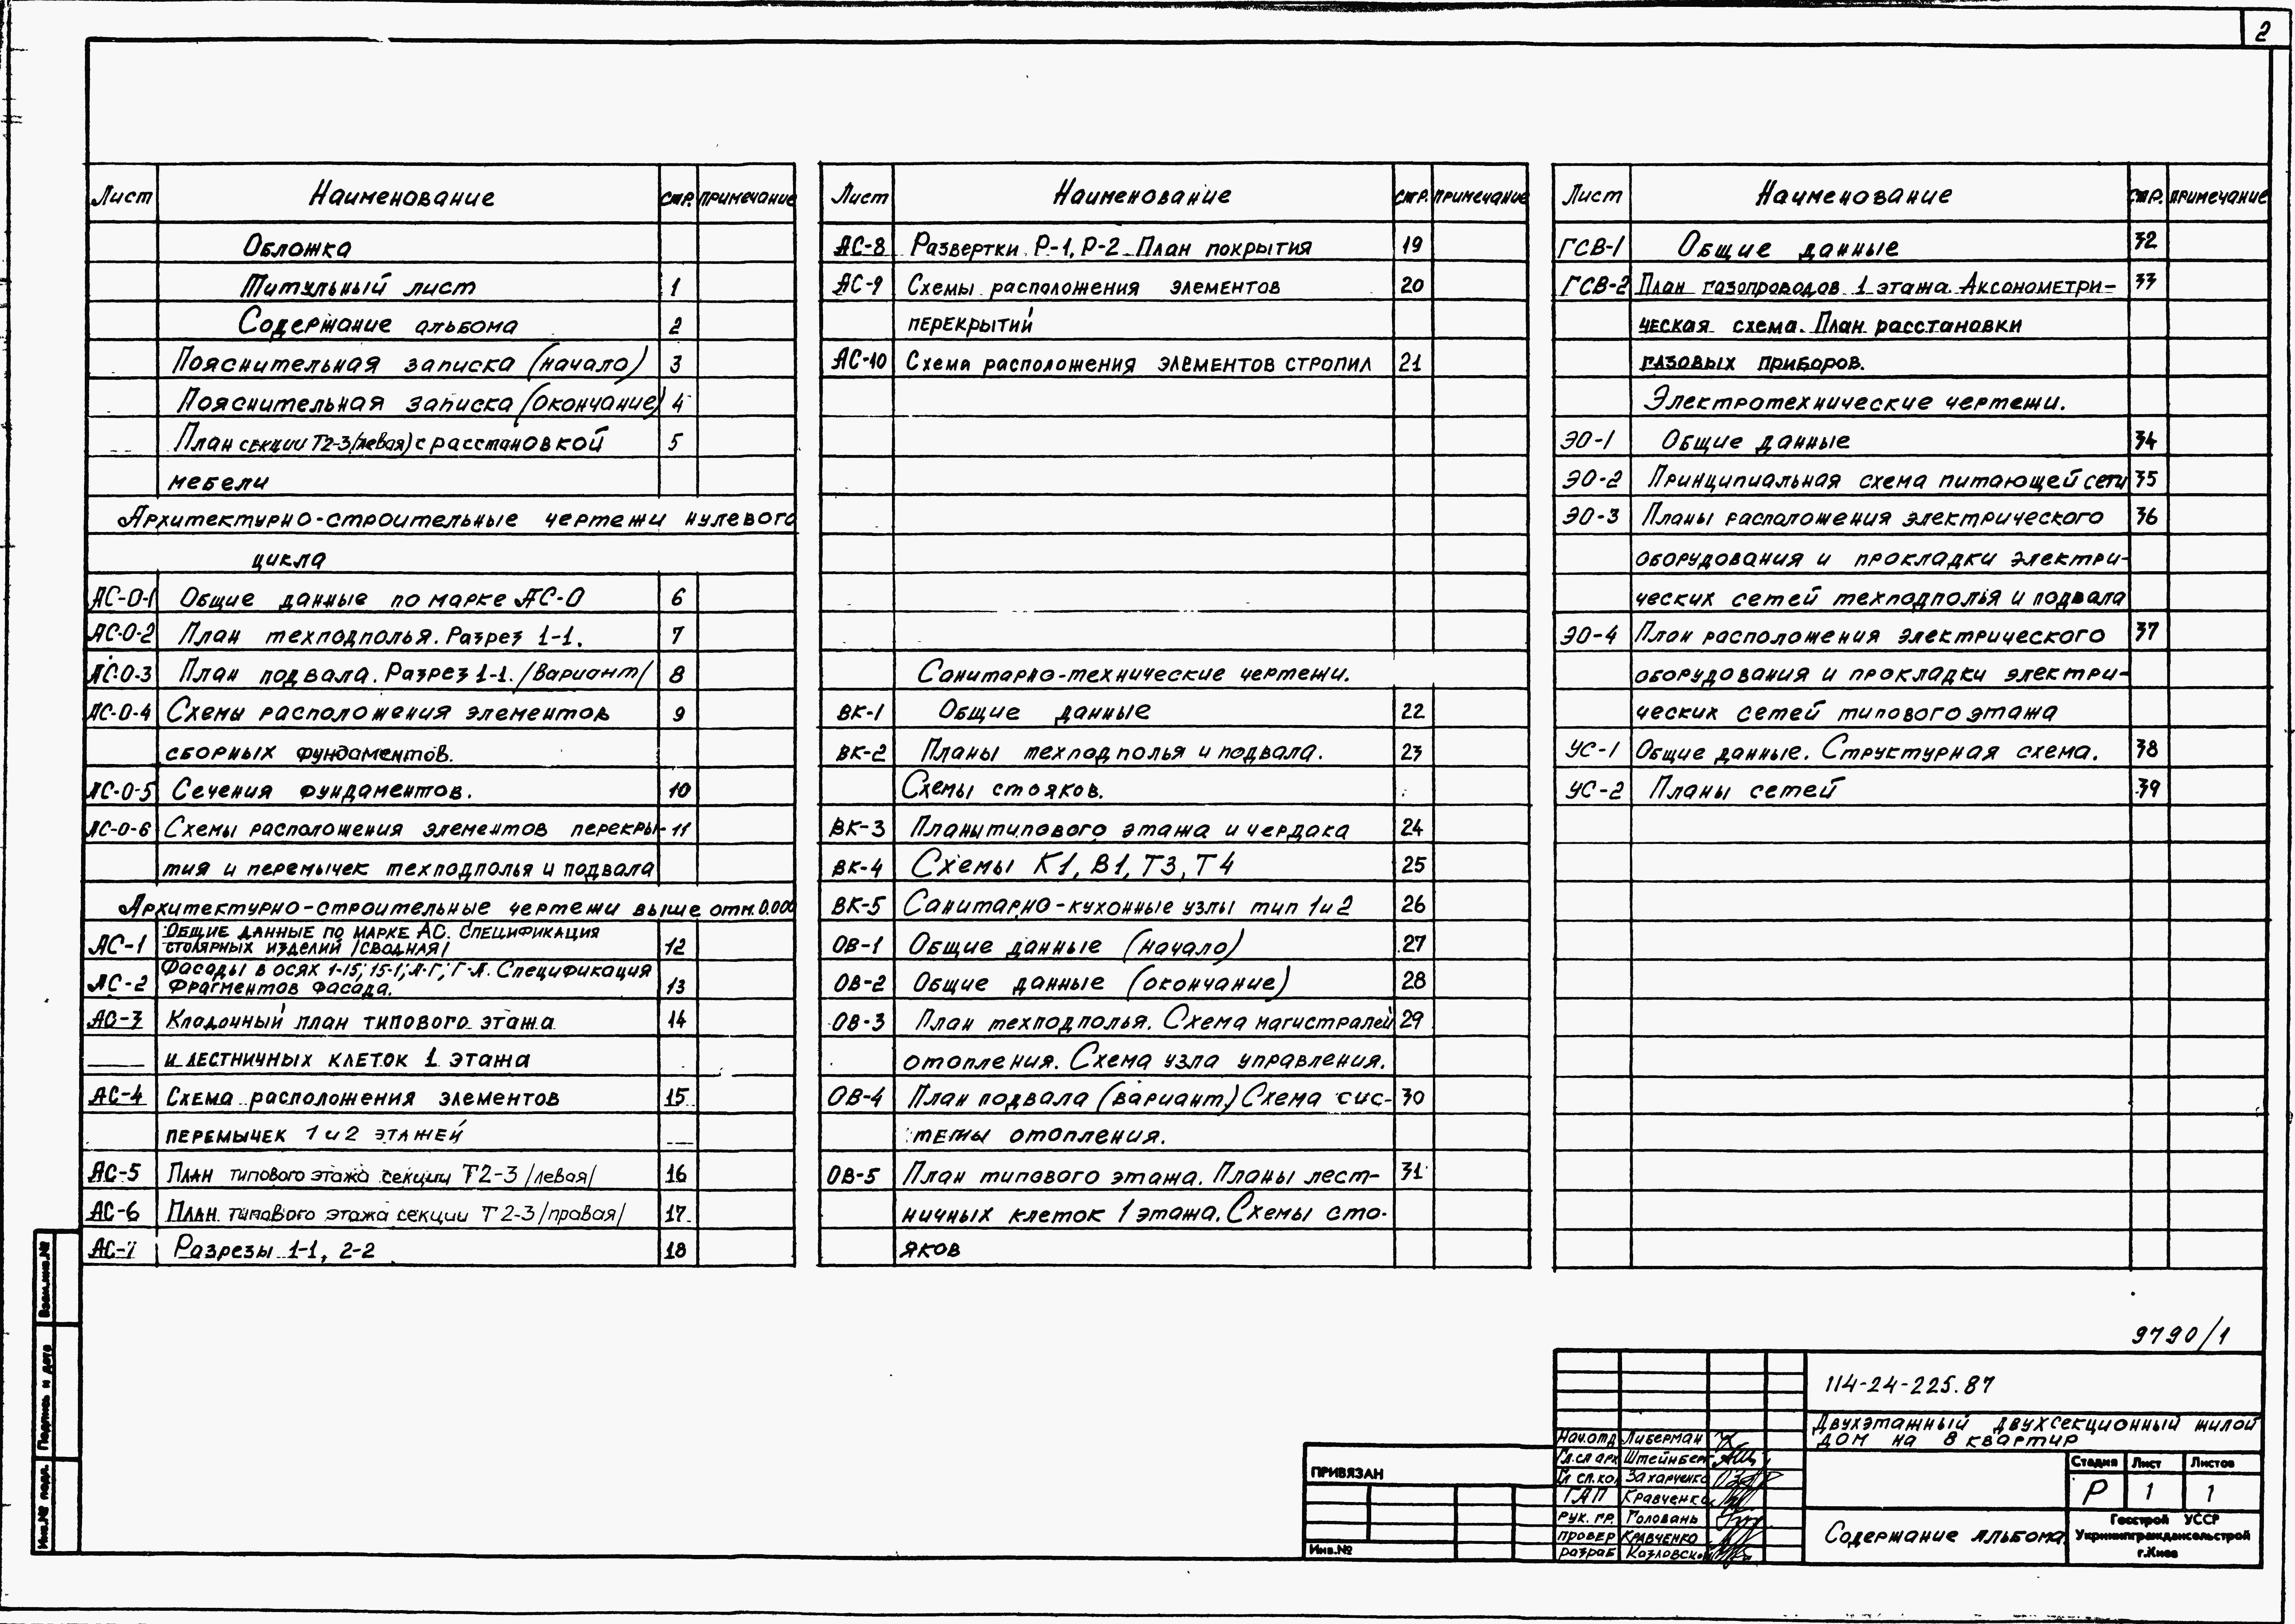 2
Лист Наименование Стр. Примечание
Обложка
Титульный лист 1
Содержание альбома 2
Пояснительная записка (начало) 3
Пояснительная записка (окончание) 4
План секции Т2-3/левая/ с расстановкой 5
мебели
Архитектурно-строительные чертежи нулевого
цикла
АС-0-1 Общие данные по марке АС-0 6
АС-0-2 План техподполья. Разрез 1-1. 7
АС-0-3 План подвала. Разрез 1-1. /Вариант/ 8
АС-0-4 Схемы расположения элементов 9
сборных фундаментов.
АС-0-5 Сечения фундаментов. 10
АС-0-6 Схемы расположения элементов перекры- 11
тия и перемычек техподполья и подвала
Архитектурно-строительные чертежи выше отм. 0.000
АС-1 Общие данные по марке АС. Спецификация
столярных изделий /сводная/ 12
АС-2 Фасады в осях 1-15; 15-1; А-Г; Г-А. Спецификация
фрагментов фасада. 13
АС-3 Кладочный план типового этажа 14
и лестничных клеток 1 этажа
АС-4 Схема расположения элементов 15
перемычек 1 и 2 этажей
АС-5 План типового этажа секции Т2-3 /левая/ 16
АС-6 План типового этажа секции Т2-3 /правая/ 17
АС-7 Разрезы 1-1, 2-2 18
Лист Наименование Стр. Примечание
АС-8 Развертки Р-1, Р-2. План покрытия 19
АС-9 Схемы расположения элементов 20
перекрытий
АС-10 Схема расположения элементов стропил 21
Санитарно-технические чертежи.
ВК-1 Общие данные 22
ВК-2 Планы техподполья и подвала. 23
Схемы стояков.
ВК-3 Планы типового этажа и чердака 24
ВК-4 Схемы К1, В1, Т3, Т4 25
ВК-5 Санитарно-кухонные узлы тип 1 и 2 26
ОВ-1 Общие данные (начало) 27
ОВ-2 Общие данные (окончание) 28
ОВ-3 План техподполья. Схема магистралей 29
отопления. Схема узла управления.
ОВ-4 План подвала (вариант.) Схема сис- 30
темы отопления.
ОВ-5 План типового этажа. Планы лест- 31
ничных клеток 1 этажа. Схемы сто-
яков
Лист Наименование Стр. Примечание
ГСВ-1 Общие данные 32
ГСВ-2 План газопроводов 1 этажа. Аксонометри- 33
ческая схема. План расстановки
газовых приборов.
Электротехнические чертежи.
ЭО-1 Общие данные 34
ЭО-2 Принципиальная схема питающей сети 35
ЭО-3 Планы расположения электрического 36
оборудования и прокладки электри-
ческих сетей техподполья и подвала
ЭО-4 План расположения электрического 37
оборудования и прокладки электри-
ческих сетей типового этажа
УС-1 Общие данные. Структурная схема. 38
УС-2 Планы сетей 39
9790/1
114-24-225.87
Двухэтажный двухсекционный жилой
дом на 8 квартир
Нач.отд Либерман
Гл.сп арх Штейнберг
Гл сп.кон Захарченко
ГАП Кравченко
Рук. гр. Головань
провер Кравченко
разраб Козловск
Стадия Лист Листов
Р 1 1
Содержание альбома
Госстрой УССР
Укрниипграждансельстрой
г.Киев
ПРИВЯЗАН
Инв.№
Взам.инв.№
Подпись и дата
Инв.№ подл.